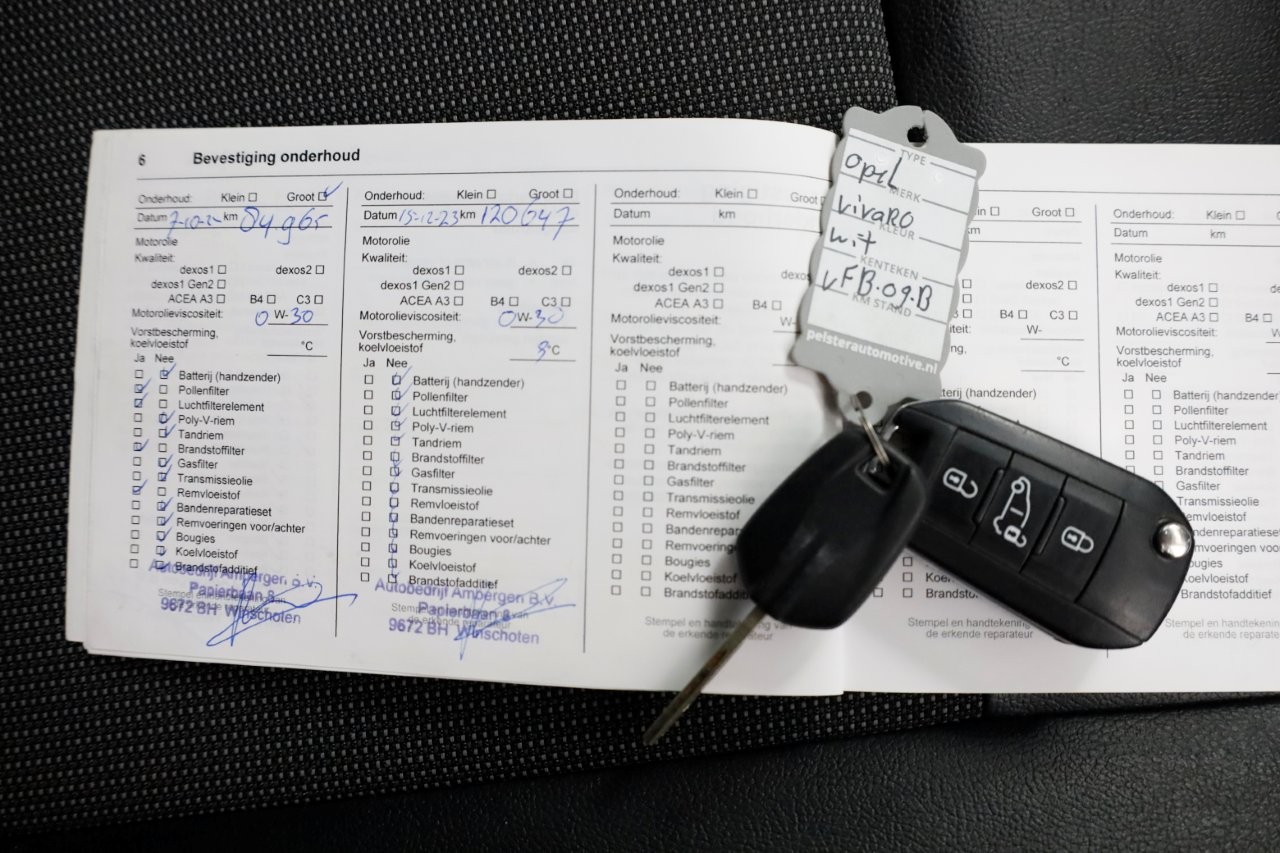 6 Bevestiging onderhoud
Onderhoud: Klein Groot
Datum 7-10-2 km 84.965
Motorolie
Kwaliteit:
dexos1 dexos2
dexos1 Gen2
ACEA A3 B4 C3
Motorolieviscositeit: 0 W-30
Vorstbescherming,
koelvloeistof °C
Ja Nee
Batterij (handzender)
Pollenfilter
Luchtfilterelement
Poly-V-riem
Tandriem
Brandstoffilter
Gasfilter
Transmissieolie
Remvloeistof
Bandenreparatieset
Remvoeringen voor/achter
Bougies
Koelvloeistof
Brandstofadditief
Autobedrijf Ambergen B.V.
Papierbaan 8
9672 BH Winschoten
Onderhoud: Klein Groot
Datum 15-12-23 km 120647
Motorolie
Kwaliteit:
dexos1 dexos2
dexos1 Gen2
ACEA A3 B4 C3
Motorolieviscositeit: 0W-30
Vorstbescherming,
koelvloeistof °C
Ja Nee
Batterij (handzender)
Pollenfilter
Luchtfilterelement
Poly-V-riem
Tandriem
Brandstoffilter
Gasfilter
Transmissieolie
Remvloeistof
Bandenreparatieset
Remvoeringen voor/achter
Bougies
Koelvloeistof
Brandstofadditief
Autobedrijf Ambergen B.V.
Stempel en handtekening van
de erkende reparateur
Papierbaan 8
9672 BH Winschoten
Onderhoud: Klein Groot
Datum km
Motorolie
Kwaliteit:
dexos1
dexos1 Gen2
ACEA A3 B4
Motorolieviscositeit: W-
Vorstbescherming,
koelvloeistof
Ja Nee
Batterij (handzender)
Pollenfilter
Luchtfilterelement
Poly-V-riem
Tandriem
Brandstoffilter
Gasfilter
Transmissieolie
Remvloeistof
Bandenrepar
Remvoering
Bougies
Koelvloeistof
Brandstofadd
Stempel en handtekening va
de erkende reparateur
TYPE
Opel
MERK
Vivaro
KLEUR
wit
KENTEKEN
VFB.09.B
KM STAND
pelsterautomotive.nl
Groot
km
dexos2
B4 C3
W-
°C
Koel
Brandsto
Stempel en handtekening
de erkende reparateur
Onderhoud: Klein
Datum km
Motorolie
Kwaliteit:
dexos1
dexos1 Gen2
ACEA A3 B4
Motorolieviscositeit: W-
Vorstbescherming,
koelvloeistof
Ja Nee
Batterij (handzender
Pollenfilter
Luchtfilterelement
Poly-V-riem
Tandriem
Brandstoffilter
Gasfilter
Transmissieolie
emvloeistof
ndenreparatieset
mvoeringen voor/a
ugies
Koelvloeistof
Brandstofadditief
Stempel en handtekening
de erkende reparate